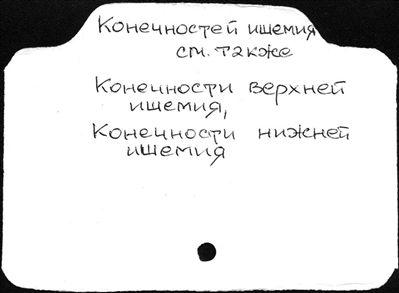 Конечностей ишемия
см. также
Конечности верхней
ишемия,
Конечности нижней
ишемия